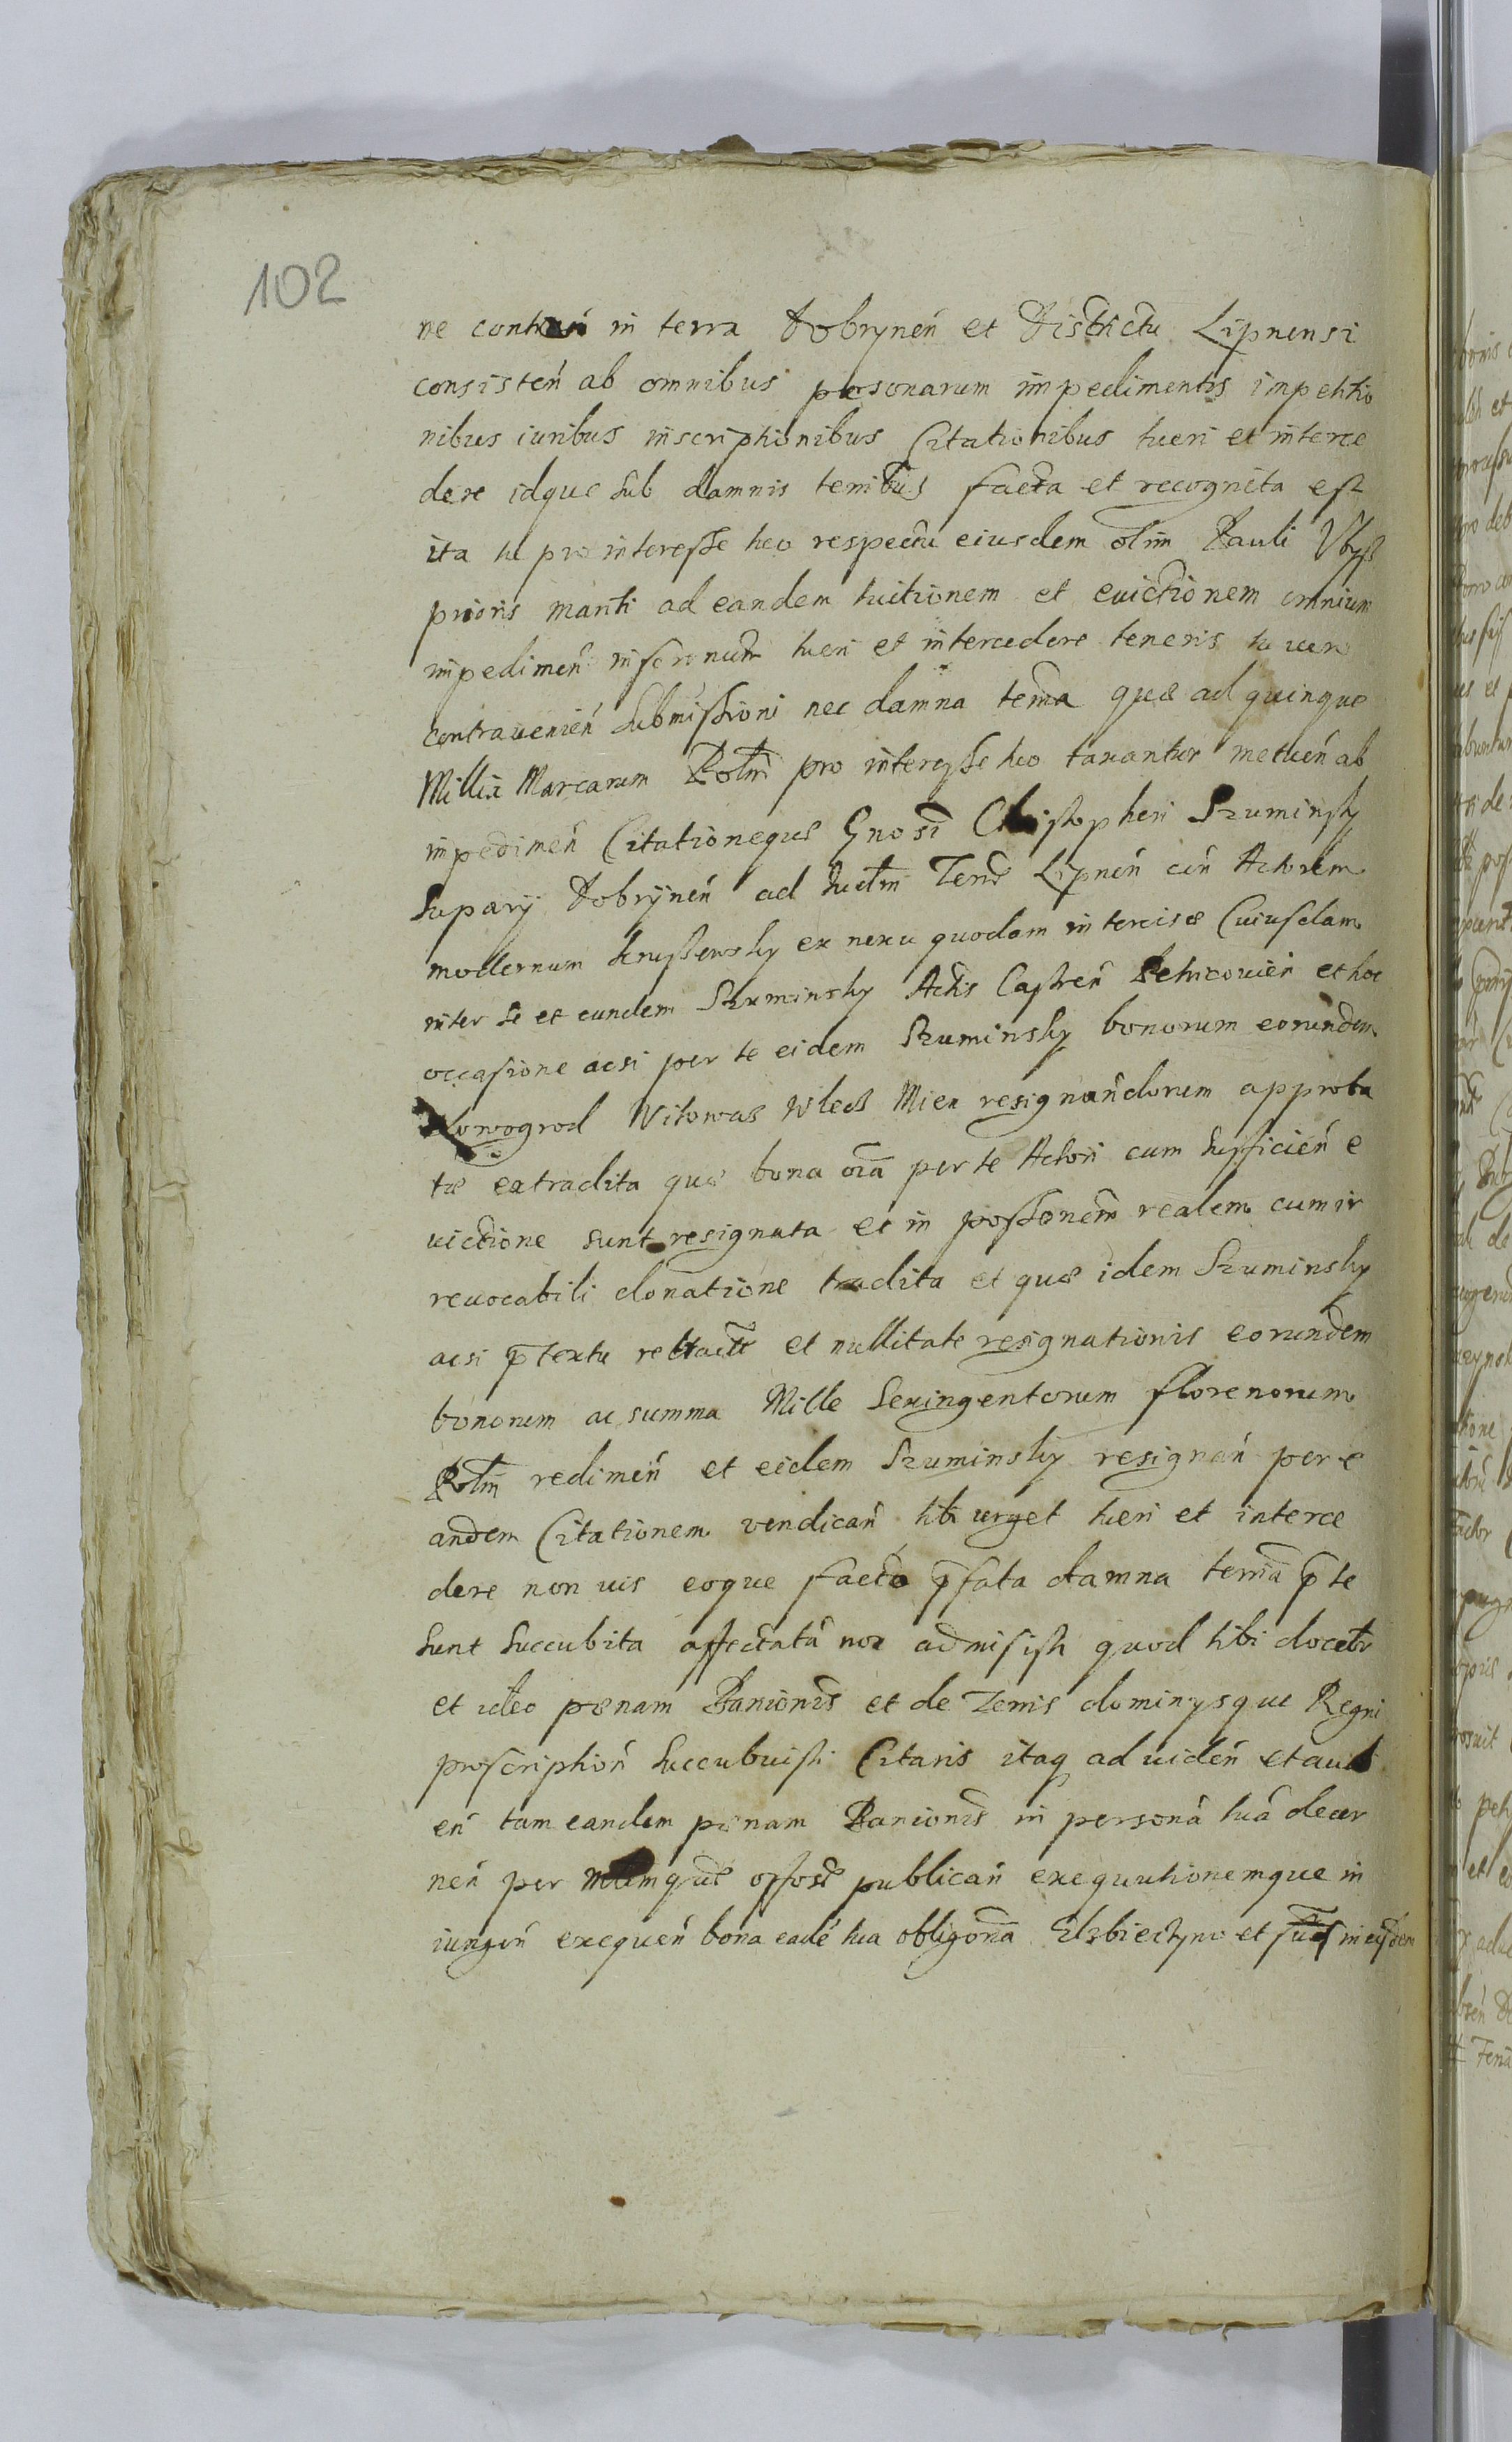 102
ne contrañ in terra Dobryneń et Districtu Lipnensi
consisteń ab omnibus personarum impedimentis impetitio
nibus iuribus inscriptionibus Citationibus tueri et interce
dere idque sub damnis terribus facta et recognita est
ita tu pro interesse tuo respectu eiusdem olim Pauli
prioris mariti ad eandem tuitionem et euictionem omnium
impedimeń tueri et intercedere teneris tu uero
contrauenień submissioni nec damna terrā quæ ad quinque
Millia Marcarum Polīn pro interesse tuo taxantur metueń ab
impedimeń Citationeque Gnosi Christopheri Szuminsky
Suparij Dobrijneń ad Iudm Terrē Lipneń cōn Actorem
modernum Krussewsky ex nexu quodam intercisæ Cuiusdam
inter se et eundem Szuminsky Actis Castreń Petricouień et hoc
occasione acsi per te eidem Szuminsky bonorum eorundem
Nowogrod Witowas Wlecz Mien resignandorum approba
tæ extradita quæ bona oīa per te Actori cum sufficień e
uictione sunt resignata et in possionem realem cum ir
reuocabili donatione tradita et quæ idem Szuminsky
acsi p̄textu retractū et nullitate resignationis eorundem
bonorum ac summa Mille Sexingentorum florenorum
Polīn redimeń et eidem Szuminsky resignań per e
andem Citationem vendicań tibi urget tueri et interce
dere non uis eoque facto p̄fata damna terrīa p̄ te
sunt succubita affectatā non admisisti quod tibi docebr
et ideo pœnam Banionis et de Terris dominysque Regni
proscriptioń succubuisti Citaris itaq ad uideń et audi
eń tam eandem pœnam Banionis in personā tuā decer
neń per publicań exequutionemque in
iungeń exequeń bona eadē tua obligoria Elzbiectyno et in eisdem